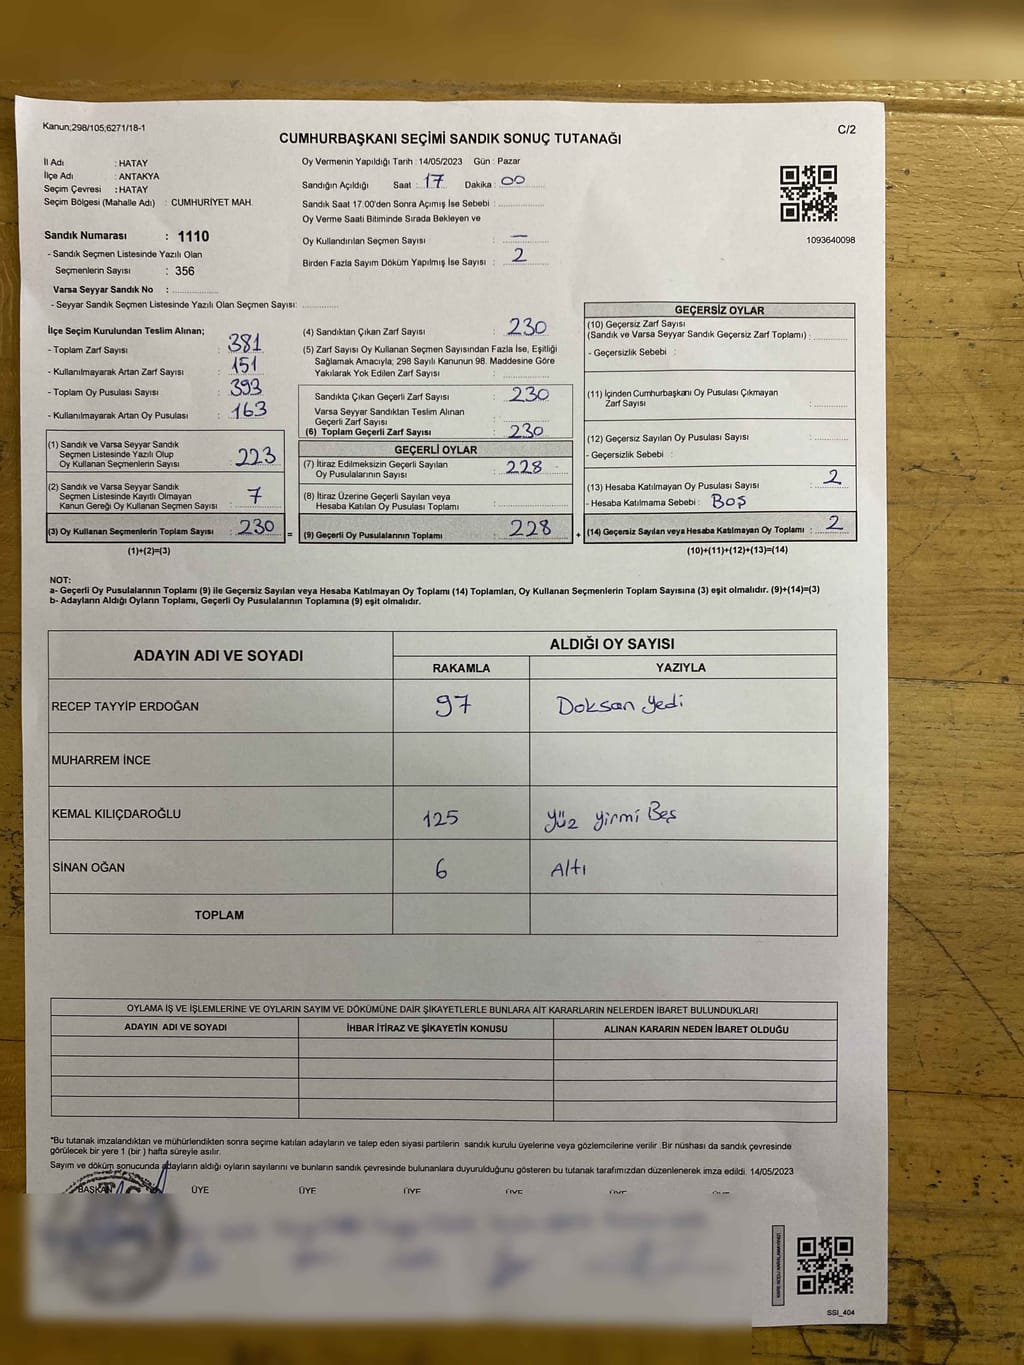 Kanun;298/105;6271/18-1
C/2
CUMHURBAŞKANI SEÇİMİ SANDIK SONUÇ TUTANAĞI
İl Adı : HATAY
İlçe Adı : ANTAKYA
Seçim Çevresi : HATAY
Seçim Bölgesi (Mahalle Adı) : CUMHURİYET MAH.
Sandık Numarası : 1110
- Sandık Seçmen Listesinde Yazılı Olan
Seçmenlerin Sayısı : 356
Varsa Seyyar Sandık No :
- Seyyar Sandık Seçmen Listesinde Yazılı Olan Seçmen Sayısı:
Oy Vermenin Yapıldığı Tarih : 14/05/2023 Gün : Pazar
Sandığın Açıldığı Saat : 17 Dakika : 00
Sandık Saat 17.00'den Sonra Açımış İse Sebebi :
Oy Verme Saati Bitiminde Sırada Bekleyen ve
Oy Kullandırılan Seçmen Sayısı : —
Birden Fazla Sayım Döküm Yapılmış İse Sayısı : 2
1093640098
İlçe Seçim Kurulundan Teslim Alınan;
- Toplam Zarf Sayısı : 381
- Kullanılmayarak Artan Zarf Sayısı : 151
- Toplam Oy Pusulası Sayısı : 393
- Kullanılmayarak Artan Oy Pusulası : 163
(1) Sandık ve Varsa Seyyar Sandık
Seçmen Listesinde Yazılı Olup
Oy Kullanan Seçmenlerin Sayısı : 223
(2) Sandık ve Varsa Seyyar Sandık
Seçmen Listesinde Kayıtlı Olmayan
Kanun Gereği Oy Kullanan Seçmen Sayısı : 7
(3) Oy Kullanan Seçmenlerin Toplam Sayısı : 230 =
(1)+(2)=(3)
(4) Sandıktan Çıkan Zarf Sayısı : 230
(5) Zarf Sayısı Oy Kullanan Seçmen Sayısından Fazla İse, Eşitliği
Sağlamak Amacıyla; 298 Sayılı Kanunun 98. Maddesine Göre
Yakılarak Yok Edilen Zarf Sayısı :
Sandıkta Çıkan Geçerli Zarf Sayısı : 230
Varsa Seyyar Sandıktan Teslim Alınan
Geçerli Zarf Sayısı :
(6) Toplam Geçerli Zarf Sayısı : 230
GEÇERLİ OYLAR
(7) İtiraz Edilmeksizin Geçerli Sayılan
Oy Pusulalarının Sayısı : 228
(8) İtiraz Üzerine Geçerli Sayılan veya
Hesaba Katılan Oy Pusulası Toplamı :
(9) Geçerli Oy Pusulalarının Toplamı : 228 +
GEÇERSİZ OYLAR
(10) Geçersiz Zarf Sayısı
(Sandık ve Varsa Seyyar Sandık Geçersiz Zarf Toplamı) :
- Geçersizlik Sebebi :
(11) İçinden Cumhurbaşkanı Oy Pusulası Çıkmayan
Zarf Sayısı :
(12) Geçersiz Sayılan Oy Pusulası Sayısı :
- Geçersizlik Sebebi :
(13) Hesaba Katılmayan Oy Pusulası Sayısı : 2
- Hesaba Katılmama Sebebi : Boş
(14) Geçersiz Sayılan veya Hesaba Katılmayan Oy Toplamı : 2
(10)+(11)+(12)+(13)=(14)
NOT:
a- Geçerli Oy Pusulalarının Toplamı (9) ile Geçersiz Sayılan veya Hesaba Katılmayan Oy Toplamı (14) Toplamları, Oy Kullanan Seçmenlerin Toplam Sayısına (3) eşit olmalıdır. (9)+(14)=(3)
b- Adayların Aldığı Oyların Toplamı, Geçerli Oy Pusulalarının Toplamına (9) eşit olmalıdır.
ADAYIN ADI VE SOYADI ALDIĞI OY SAYISI
RAKAMLA YAZIYLA
RECEP TAYYİP ERDOĞAN 97 Doksan yedi
MUHARREM İNCE
KEMAL KILIÇDAROĞLU 125 Yüz yirmi Beş
SİNAN OĞAN 6 Altı
TOPLAM
OYLAMA İŞ VE İŞLEMLERİNE VE OYLARIN SAYIM VE DÖKÜMÜNE DAİR ŞİKAYETLERLE BUNLARA AİT KARARLARIN NELERDEN İBARET BULUNDUKLARI
ADAYIN ADI VE SOYADI İHBAR İTİRAZ VE ŞİKAYETİN KONUSU ALINAN KARARIN NEDEN İBARET OLDUĞU
*Bu tutanak imzalandıktan ve mühürlendikten sonra seçime katılan adayların ve talep eden siyasi partilerin sandık kurulu üyelerine veya gözlemcilerine verilir .Bir nüshası da sandık çevresinde
görülecek bir yere 1 (bir ) hafta süreyle asılır.
Sayım ve döküm sonucunda adayların aldığı oyların sayılarını ve bunların sandık çevresinde bulunanlara duyurulduğunu gösteren bu tutanak tarafımızdan düzenlenerek imza edildi. 14/05/2023
BAŞKAN ÜYE ÜYE ÜYE ÜYE ÜYE
SSI_404